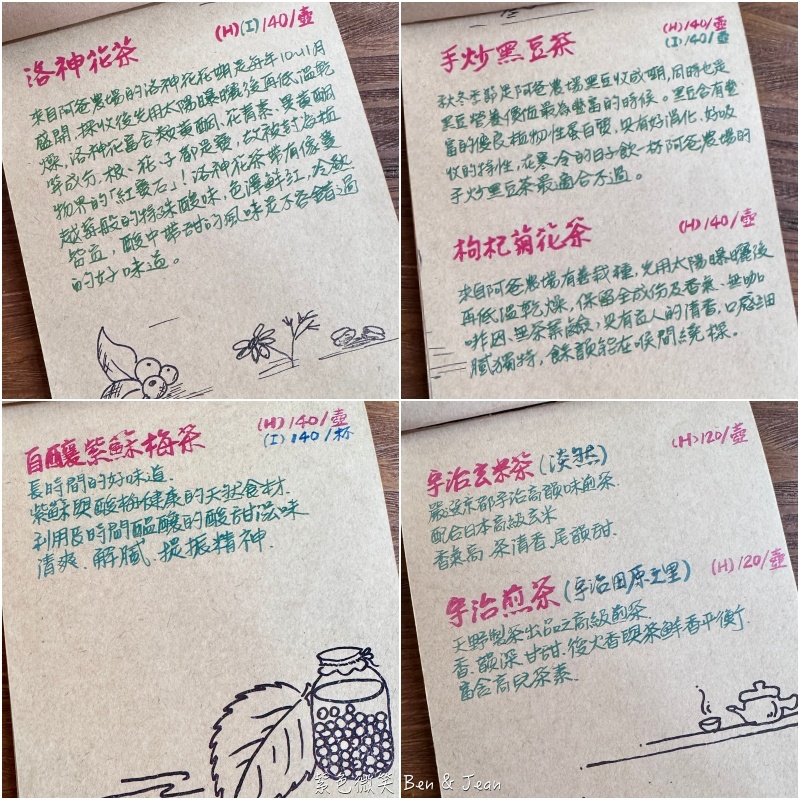 洛神花茶
(H)(I) 140/壺
來自阿爸農場的洛神花花期是每年10~11月
盛開,採收後先用太陽曝曬後再低溫乾
燥、洛神花富含類黃酮、花青素、異黃酮
等成分,根、花、子都是寶,故被封為植
物界的「紅寶石」!洛神花茶帶有像蔓
越莓般的特殊酸味,色澤鮮紅,冷熱
皆宜,酸中帶甜的風味是不容錯過
的好味道。
手炒黑豆茶
(H) 140/壺
(I) 140/壺
秋冬季節是阿爸農場黑豆收成期,同時也是
黑豆營養價值最為豐富的時候。黑豆含有豐
富的優良植物性蛋白質,具有好消化、好吸
收的特性,在寒冷的日子飲一杯阿爸農場的
手炒黑豆茶最適合不過。
枸杞菊花茶
(H) 140/壺
來自阿爸農場有善栽種,先用太陽曝曬後
再低溫乾燥,保留全成份及香氣、無咖
啡因、無茶葉鹼,具有宜人的清香,口感細
膩獨特,餘韻能在喉間繞樑。
自釀紫蘇梅茶
(H) 140/壺
(I) 140/杯
長時間的好味道.
紫蘇與酸梅健康的天然食材.
利用長時間醞釀的酸甜滋味
清爽、解膩、提振精神.
宇治玄米茶(淡然)
(H) 120/壺
嚴選京都宇治高韻味煎茶.
配合日本高級玄米
香氣高、茶清香、尾韻甜.
宇治煎茶(宇治田原之里)
(H) 120/壺
天野製茶出品之高級煎茶.
香、韻深、甘甜.後火香與茶鮮香平衡.
富含高兒茶素.
紫色微笑 Ben & Jean